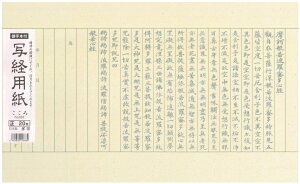 摩訶般若波羅蜜多心経
観自在菩薩行深般若波羅蜜多時照見五
蘊皆空度一切苦厄舎利子色不異空空不
異色色即是空空即是色受想行識亦復如
是舎利子是諸法空相不生不滅不垢不浄
不増不減是故空中無色無受想行識無眼
耳鼻舌身意無色声香味触法無眼界乃至
無意識界無無明亦無無明尽乃至無老死
亦無老死尽無苦集滅道無智亦無得以無
所得故菩提薩埵依般若波羅蜜多故心無
罣礙無罣礙故無有恐怖遠離一切顛倒夢
想究竟涅槃三世諸仏依般若波羅蜜多故
得阿耨多羅三藐三菩提故知般若波羅蜜
多是大神呪是大明呪是無上呪是無等等
呪能除一切苦真実不虚故説般若波羅蜜
多呪即説呪曰
羯諦羯諦波羅羯諦波羅僧羯諦
菩提薩婆訶
般若心経
為
写経用紙
こころ
20枚